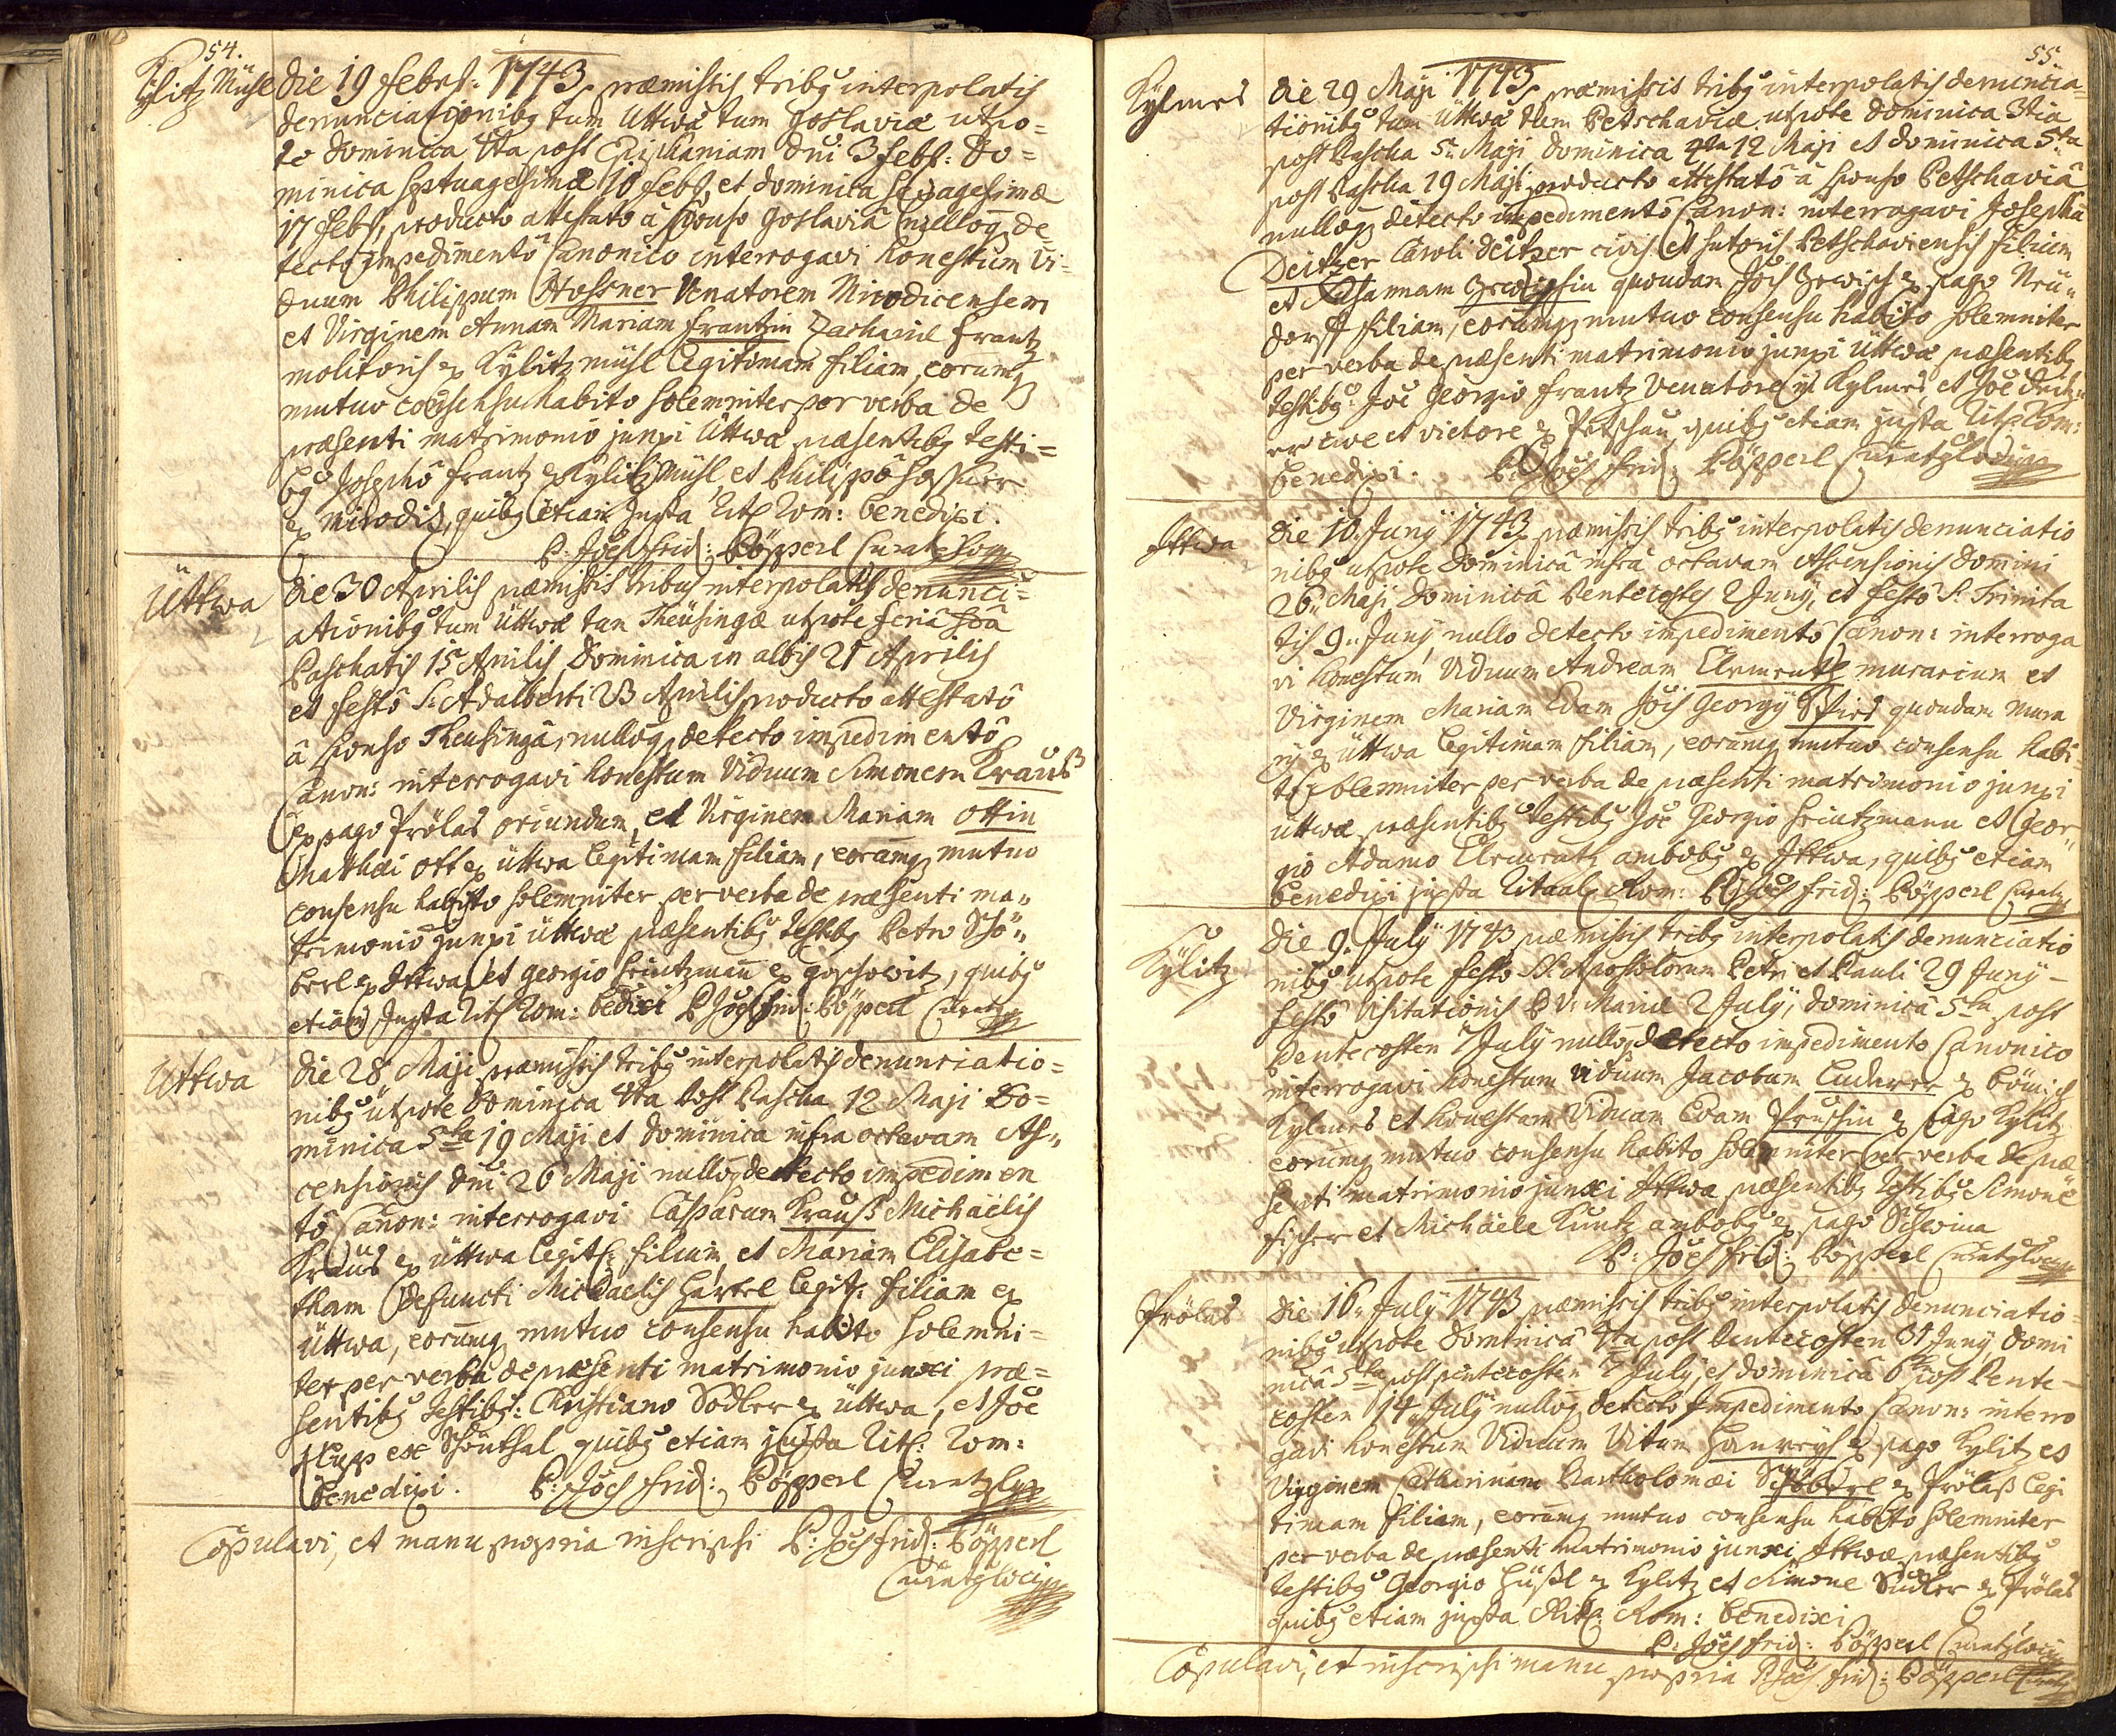 54.
Kylitz Mühl
Die 19 Febr: 1743 præmissis tribg interpolatis
denunciationibg tum Üttwæ tum Goslaviæ utpo=
te Dominica 4ta post Epiphaniam Dni 3 Febr: Do=
minica Septuagesimæ 10 Febr, et Dominica Sexagesimæ
17 Febr, producto attestato â Sponso Goslaviâ nulloq de=
tecto impedimentô Canonico interrogavi honestum Vi=
duum Philippum Hossner Venatorem
et Virginem Annam Mariam Frantzin Zachariæ Frantz
molitoris ex Kylitzmühl legitimam filiam, eorumq
mutuo consensu habito solemniter per verba de
præsenti matrimonio junxi Üttwæ præsentibg testi=
bg Josephô Frantz ex Kylitz Mühl, et Philippô Hossner
ex quibg etiam juxta Rit Rom: benedixi.
P. Jões Frid: Pöpperl Curatg
Üttwa
Die 30 Aprilis præmissis tribus interpolatis denunci=
ationibg tum Üttwæ tum Theusingæ utpote feriâ 2da
Paschatis 15 Aprilis, Dominica in albis 21 Aprilis
et festô S: Adalberti 23 Aprilis producto attestatô
â Sponso Theusingâ, nulloq detecto impedimentô
Canon: interrogavi honestum Viduum Simonem Krauß
ex pago Prölas oriundum, et Virginem Mariam Ottin
Mathæi Ott ex Üttwa legitimam filiam, eorumq mutuo
consensu habito solemniter per verba de præsenti ma=
trimonio junxi Üttwæ præsentibg testibg Petro Schö=
berl ex Ittwa, et Georgio Heintzmañ ex Goschowitz, quibg
etiam juxta Rit Rom: bedixi P Jões Frid: Pöpperl Curatg
Üttwa
Die 28 Maji præmissis tribg interpolatis denunciatio=
nibg utpote Dominica 4ta post Pascha 12 Maji Do=
minica 5ta 19 Maji et Dominica infra octavam As=
censionis Dni 26 Maji nulloq detecto impedimen
tô Canon: interrogavi Casparum Krauß Michaëlis
Kraus ex Üttwa legit: filium, et Mariam Elisabe=
tham Defuncti Michaelis Hartel legit: filiam ex
Üttwa, eorumq mutuo consensu habito solemni=
ter per verba de præsenti matrimonio junxi præ=
sentibg testibg: Christiano Sodler ex Üttwa, et Joe
ex Schönthal quibg etiam juxta Rit: Rom:
benedixi. P: Jões Frid: Pöpperl Curatg
Copulavi, et manu propria inscripsi P: Jões Frid: Pöpperl
Curatg loci
55.
Kylmes
Die 29 Maji 1743 præmissis tribg interpolatis denuncia=
tionibg tum Üttwæ tum Petschaviæ utpote Dominica 3tia
post Pascha 5 Maji Dominica 4ta 12 Maji et Dominica 5ta
post Pascha 19 Maji producto attestatô â Sponso Petschaviâ
nulloq detecto impedimentô Canon: interrogavi Josephũ
Deitzer Caroli Deitzer civis et sutoris Petschaviensis filium
et quondam Jois ex pago Neü=
dorff filiam, eorumq mutuo consensu habito solemniter
per verba de præsenti matrimonio junxi Üttwæ præsentibg
testibg: Joe Georgio Frantz Venatore in Kylmes, et Joe
er cive et vietore ex Petschau quibg etiam juxta Rit: Rom:
benedixi. P. Jões Frid: Pöpperl Curatg loci
Ittwa
Die 10 Juny 1743 præmissis tribg interpolatis denunciatio
nibg utpote Dominicâ infra octavam Ascensionis Domini
26 Maji Dominicâ Pentecostes 2 Juny, et festô S: Trinita
tis 9 Juny nullo detecto impedimentô Canon: interroga
vi honestum Viduum Andream murarium et
Virginem Mariam Evam Jois Georgy quondam mura
rÿ ex Üttwa legitimam filiam, eorumq mutuo consensu habi=
to solemniter per verba de præsenti matrimonio junxi
Üttwæ præsentibg testibg Joe Georgio Heintzmann et Geor=
gio Adamo ambobg ex Ittwa, quibg etiam
benedixi juxta Rituale Rom: P: Jões Frid: Pöpperl Curatg
Kylitz
Die 9 July 1743 præmissis tribg interpolatis denunciatio
nibg utpote festo SS: Apostolorum Petri et Pauli 29 Juny
festô Visitationis B V: Mariæ 2 July, Dominicâ 5ta post
Pentecosten 7 July nulloq detecto impedimento Canonico
interrogavi honestum viduum Jacobum Luderer ex Bömisch
Kylmes et honestam Viduam Evam ex pago Kylitz
eorumq mutuo consensu habito solemniter per verba de præ
senti matrimonio junxi Ittwæ præsentibg testibg Simone
Fischer et Michaele Kuntz ambobg ex pago Schwina
P: Jões Frid: Pöpperl Curatg loci
Prölas
Die 16 July 1743 præmissis tribg interpolatis denunciatio=
nibg utpote Dominicâ 4ta post Pentecosten Juny Domi
nicâ 5ta post Pentecosten 7 July, et Dominicâ 6 post Pente=
costen 14 July nulloq detecto impedimento Canon: interro
gavi honestum Viduum Vitum ex pago Kylitz et
Virginem Catharinam Bartholomæi Schöberl ex Prölaß legi
timam filiam, eorumq mutuo consensu habito solemniter
per verba de præsenti matrimonio junxi Ittwæ præsentibg
testibg Georgio Hüßl ex Kylitz et Simone Sudler ex Prölas
quibg etiam juxta Rit: Rom: benedixi
P. Jões Frid: Pöpperl Curatg loci
Copulavi, et inscripsi manu propria P Jões Frid: Pöpperl Curatg